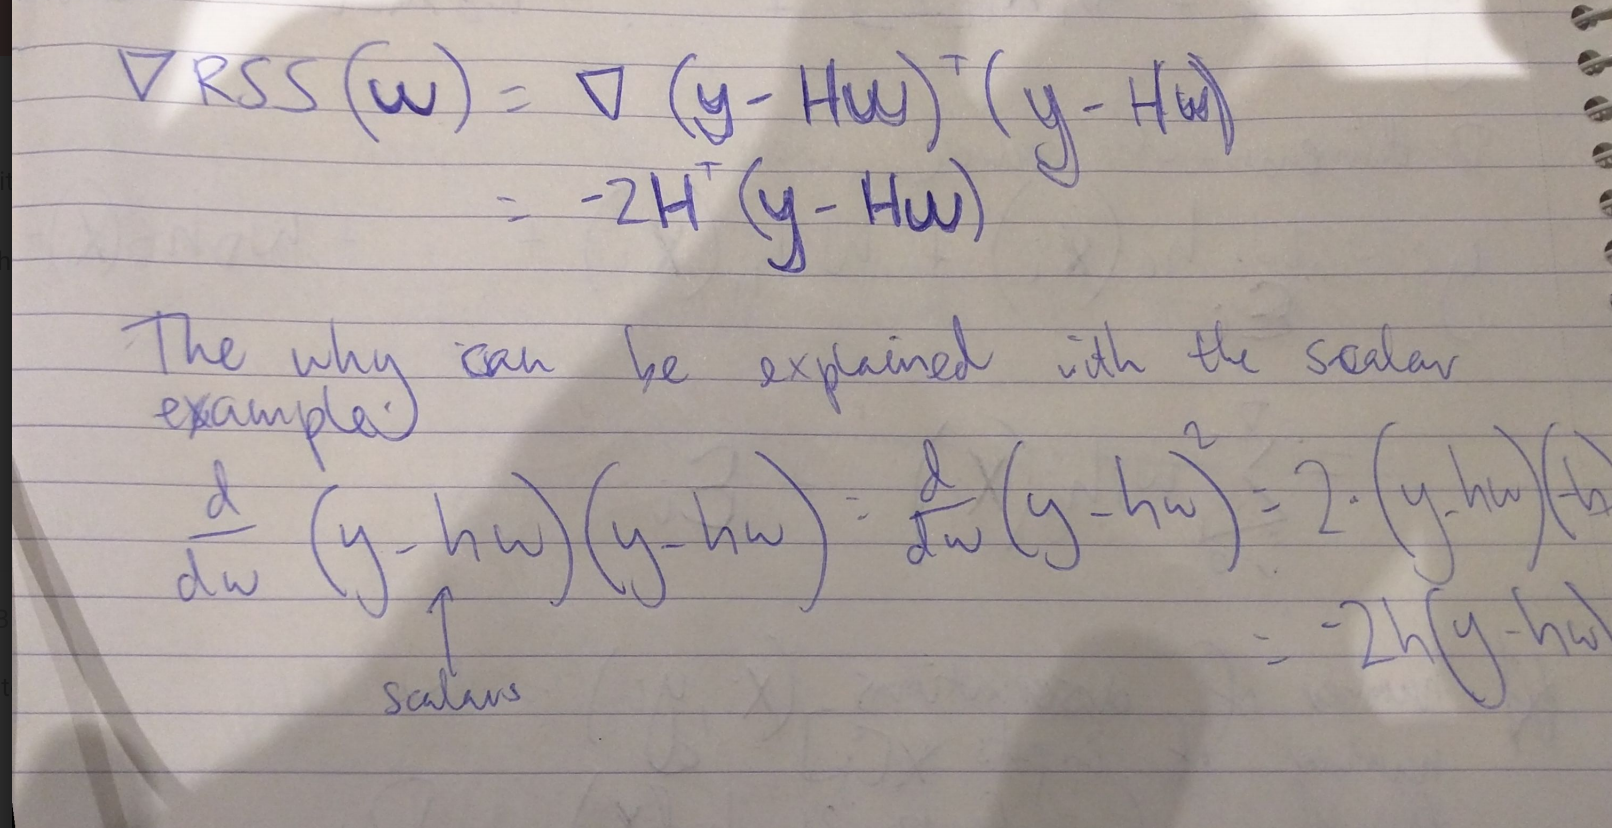 ∇ RSS (w) = ∇ (y - Hw)ᵀ (y - Hw)
= -2Hᵀ (y - Hw)
The why can be explained with the scalar
example:
d/dw (y - hw)(y - hw) = d/dw (y - hw)² = 2·(y - hw)(-h)
= -2h(y - hw)
scalars